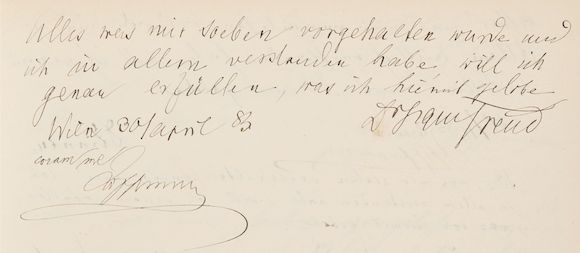 Alles was mir soeben vorgehalten wurde und
ich in allem verstanden habe will ich
genau erfüllen, was ich hiemit gelobe
Wien 30/April 83
Dr Sigm Freud
coram me
Hoffmann